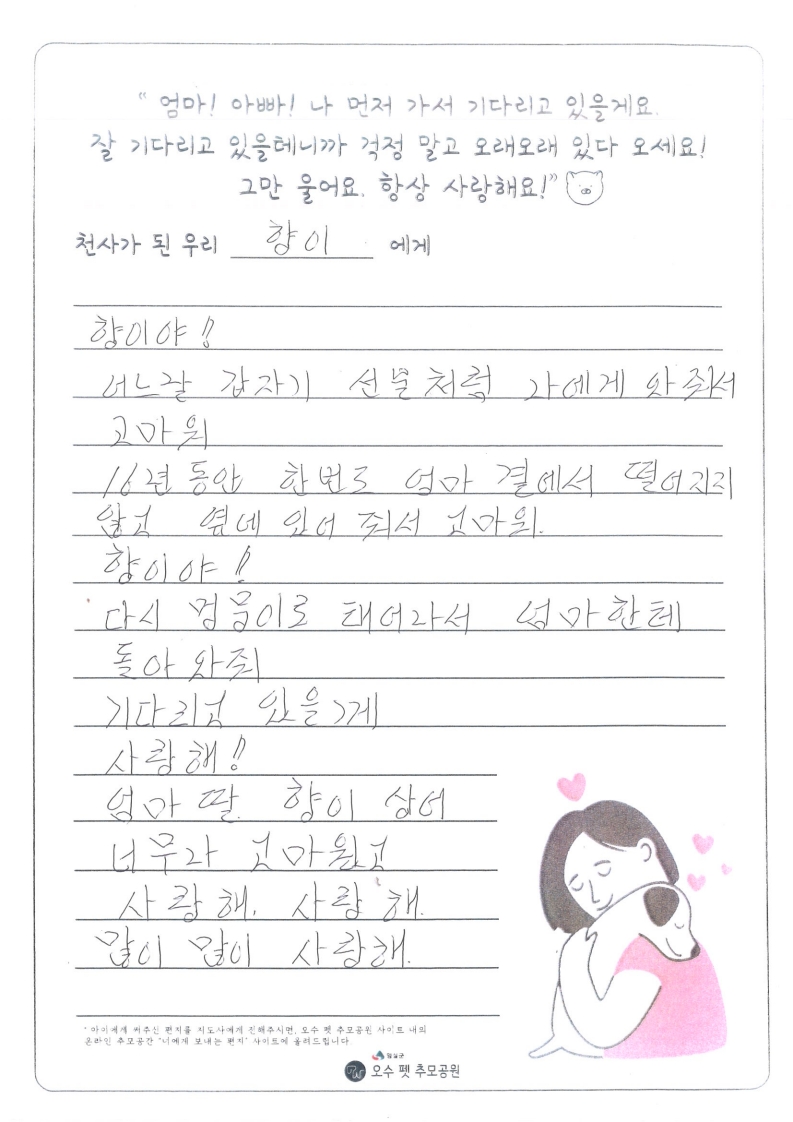 “ 엄마! 아빠! 나 먼저 가서 기다리고 있을게요.
잘 기다리고 있을테니까 걱정 말고 오래오래 있다 오세요!
그만 울어요. 항상 사랑해요!”
천사가 된 우리 향이 에게
향이야!!
어느날 갑자기 선물처럼 나에게 와줘서
고마워
16년 동안 한번도 엄마 곁에서 떨어지지
않고 옆에 있어 줘서 고마워.
향이야!!
다시 멍뭉이로 태어나서 엄마한테
돌아 와줘
기다리고 있을게
사랑해!!
엄마 딸 향이
너무나 고마웠고
사랑해. 사랑해.
많이 많이 사랑해.
* 아이에게 써주신 편지를 지도사에게 전해주시면, 오수 펫 추모공원 사이트 내의
온라인 추모공간 "너에게 보내는 편지" 사이트에 올려드립니다.
임실군
오수 펫 추모공원